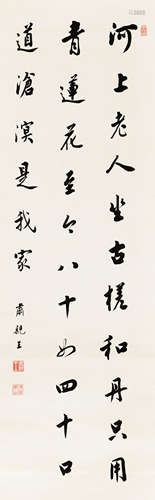 河上老人坐古槎和丹只用
青蓮花至今八十如四十口
道滄溟是我家
肅親王